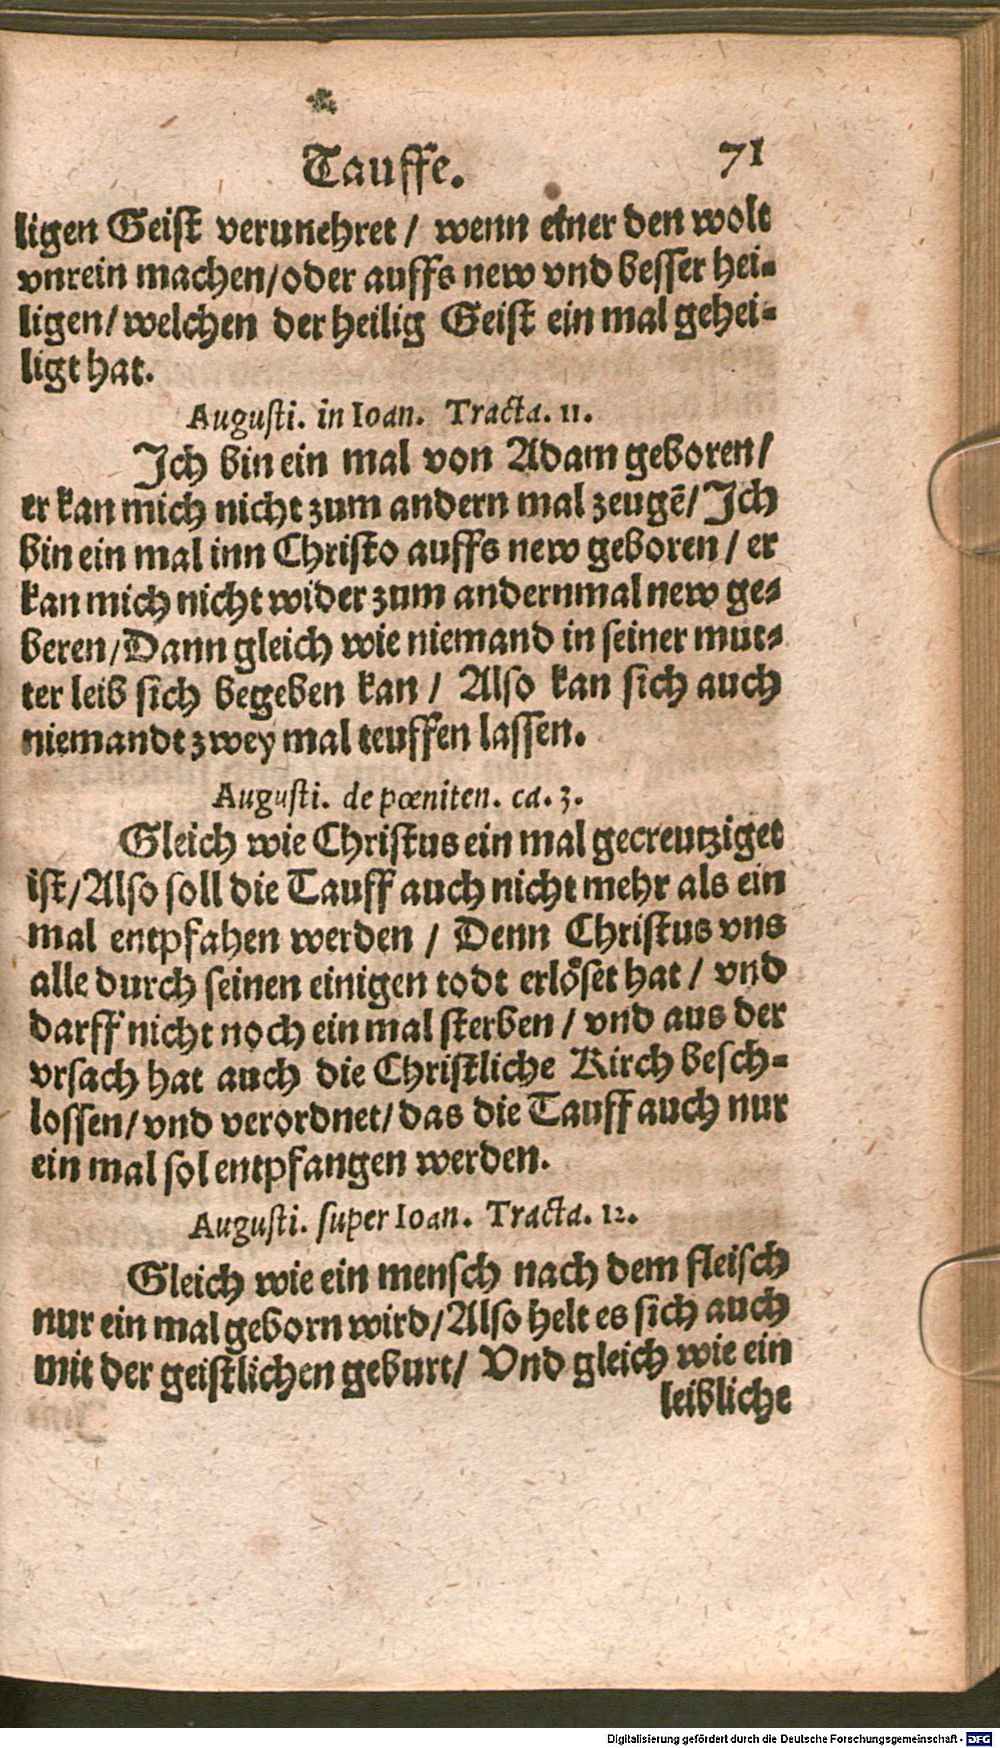 Tauffe. 71
ligen Geist verunehret / wenn einer den wolt
vnrein machen/oder auffs new vnd besser hei-
ligen/welchen der heilig Geist ein mal gehei-
ligt hat.
Augusti. in Ioan. Tracta. 11.
Ich bin ein mal von Adam geboren/
er kan mich nicht zum andern mal zeugē/Ich
bin ein mal inn Christo auffs new geboren / er
kan mich nicht wider zum andernmal new ge-
beren/Dann gleich wie niemand in seiner mut-
ter leib sich begeben kan / Also kan sich auch
niemandt zwey mal teuffen lassen.
Augusti. de pœniten. ca. 3.
Gleich wie Christus ein mal gecreutziget
ist/Also soll die Tauff auch nicht mehr als ein
mal entpfahen werden / Denn Christus vns
alle durch seinen einigen todt erlöset hat / vnd
darff nicht noch ein mal sterben / vnd aus der
vrsach hat auch die Christliche Kirch besch-
lossen/vnd verordnet/das die Tauff auch nur
ein mal sol entpfangen werden.
Augusti. super Ioan. Tracta. 12.
Gleich wie ein mensch nach dem fleisch
nur ein mal geborn wird/Also helt es sich auch
mit der geistlichen geburt/ Vnd gleich wie ein
leibliche
Digitalisierung gefördert durch die Deutsche Forschungsgemeinschaft - DFG